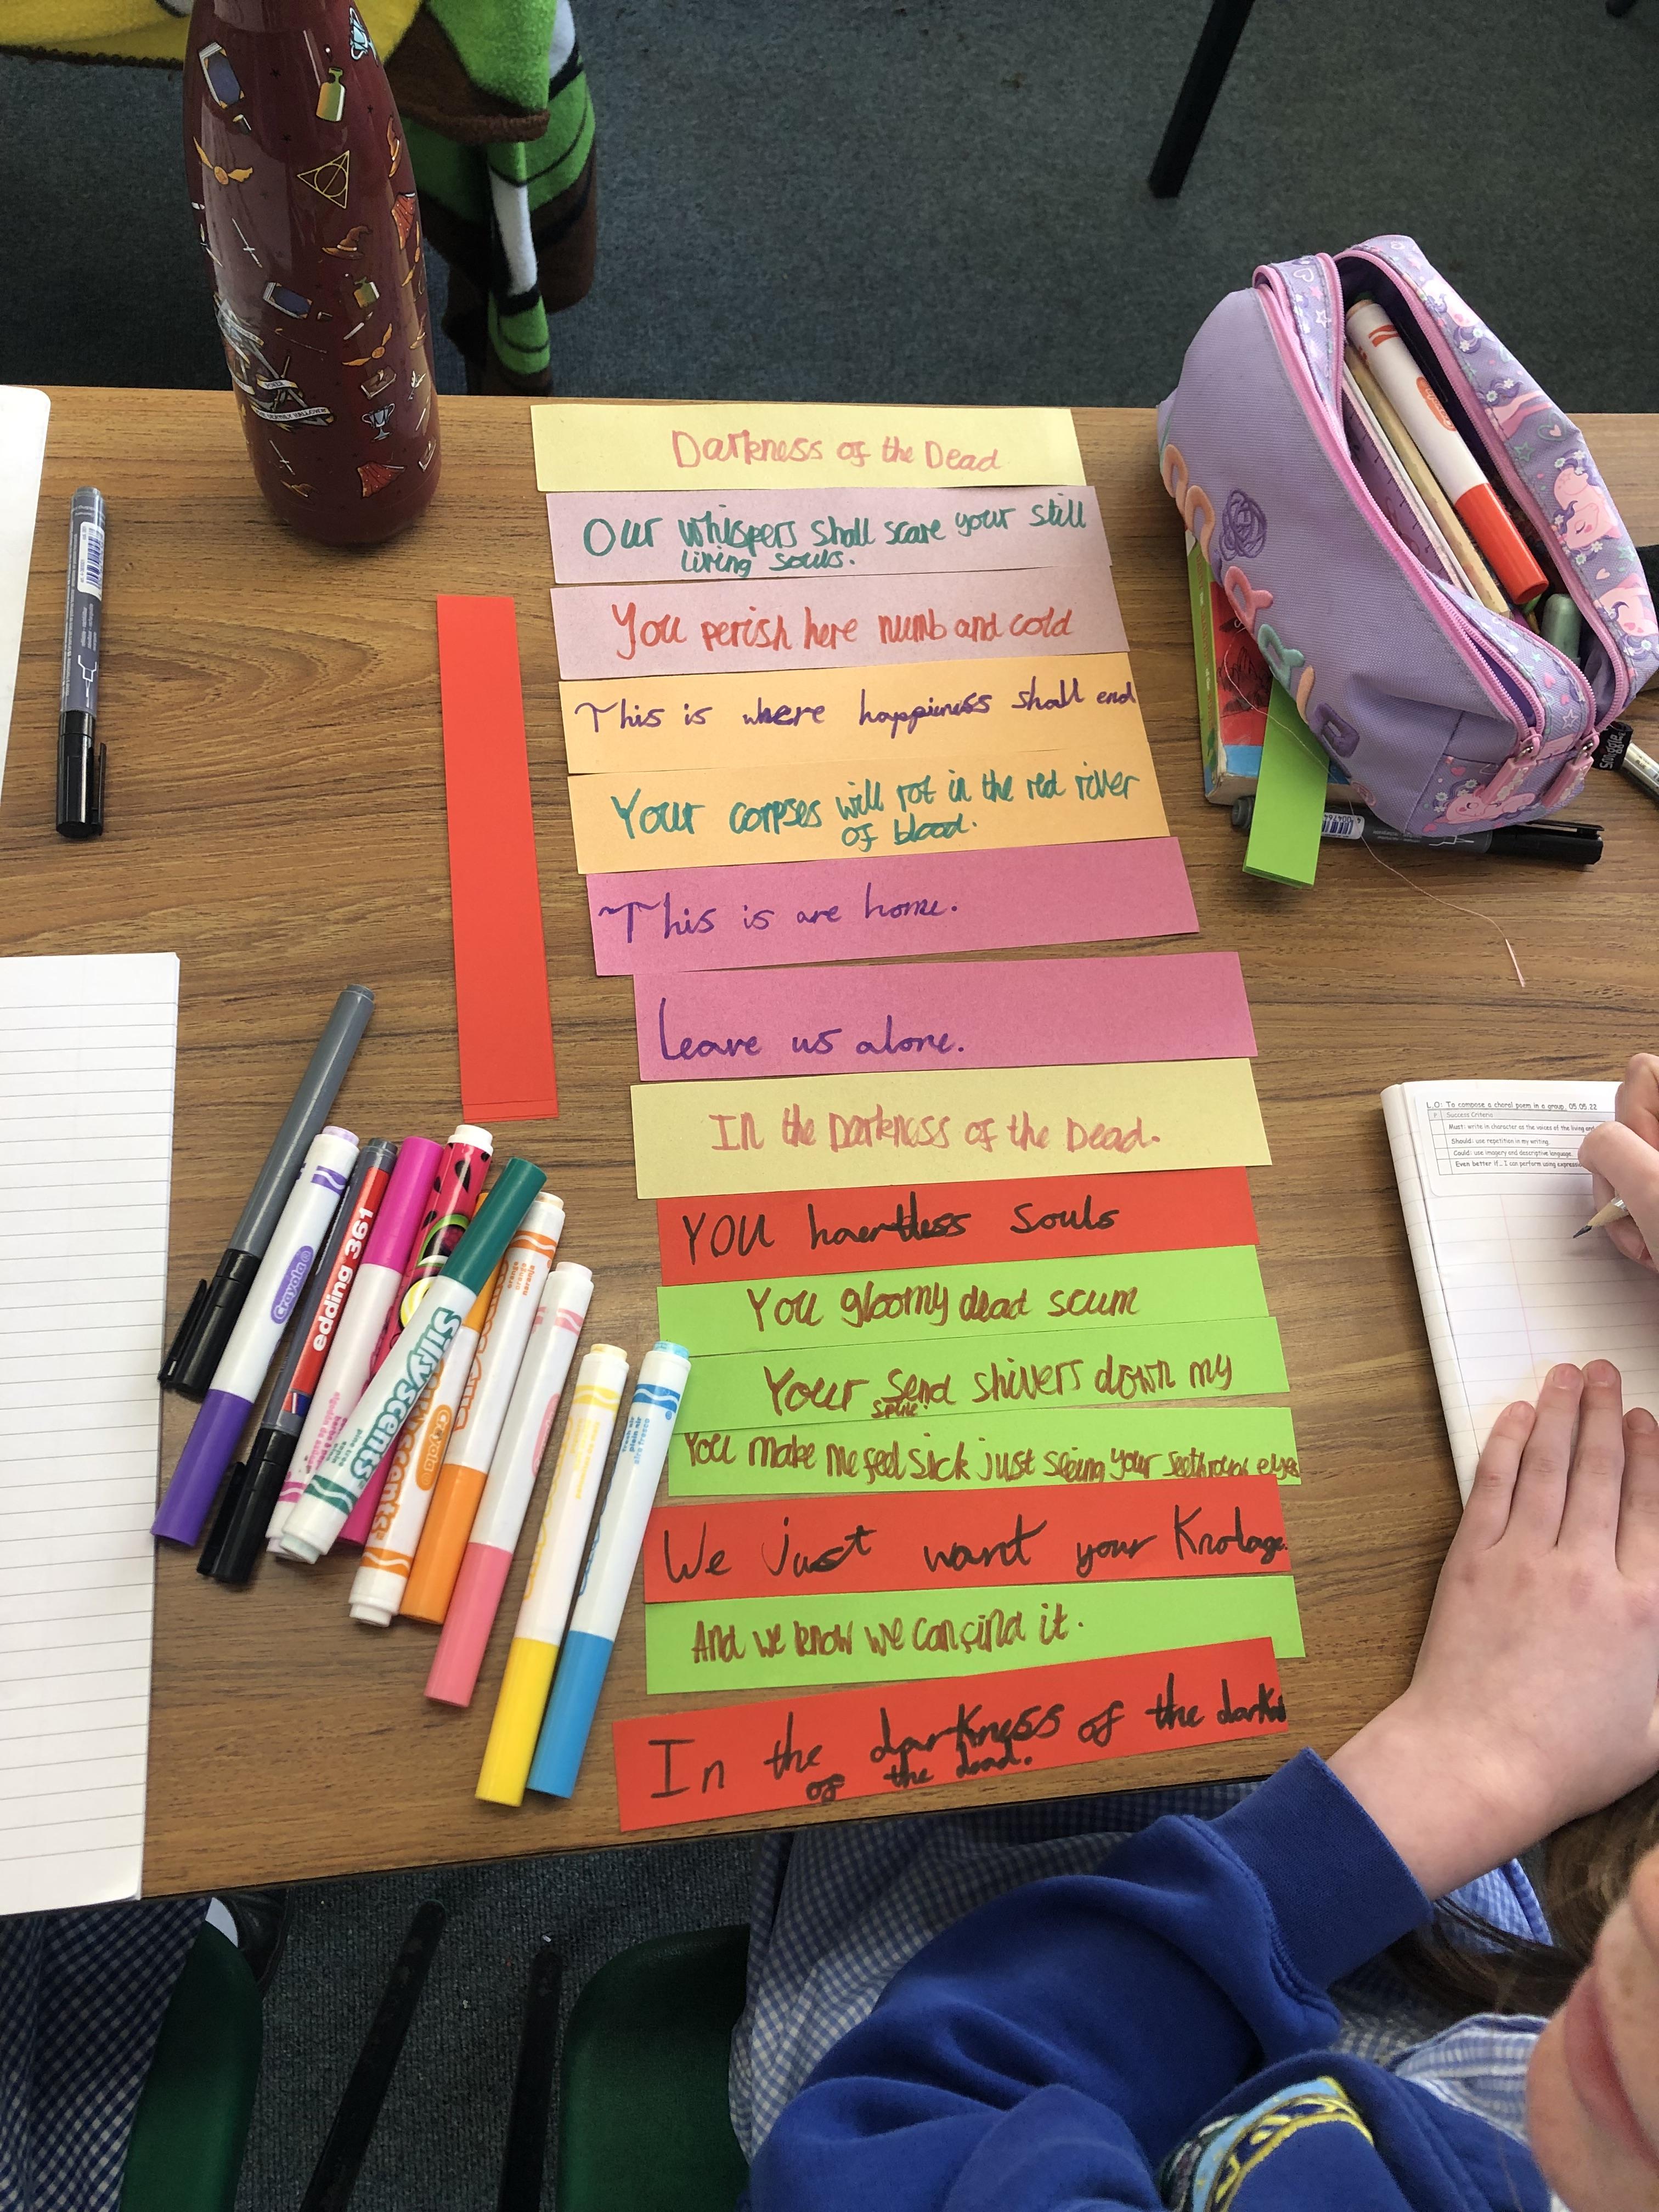 Darkness of the Dead
Our whispers shall scare your still
living souls.
You perish here numb and cold
This is where happieness shall end
Your corpses will rot in the red river
of blood.
This is are home.
Leave us alone.
In the Darkness of the Dead.
YOU heartless souls
You gloomy dead scum
Your send shivers down my
spine
You make me feel sick just seeing your seethrough eyes
We just want your Knolage.
And we know we can find it.
In the darkness of the
of the dead.
L.O: To compose a choral poem in a group. 05.05.22
Success Criteria
Must: write in character as the voices of the living and
Should: use repetition in my writing.
Could: use imagery and descriptive language.
Even better if.. I can perform using
Crayola
edding 361
Silly scents
Crayola